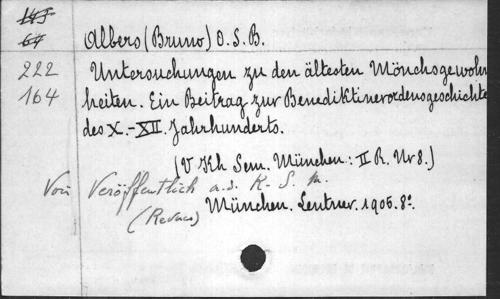 145
64
Albers (Bruno) O. S. B.
222 Untersuchungen zu den ältesten Mönchsgewohn
164 heiten. Ein Beitrag zur Benediktinerordensgeschichte
des X.-XII. Jahrhunderts.
(V Kh Sem. München: II R. Nr 8.)
Von Veröffentlich a. d. K. S. M.
München. Lentner. 1905. 8°.